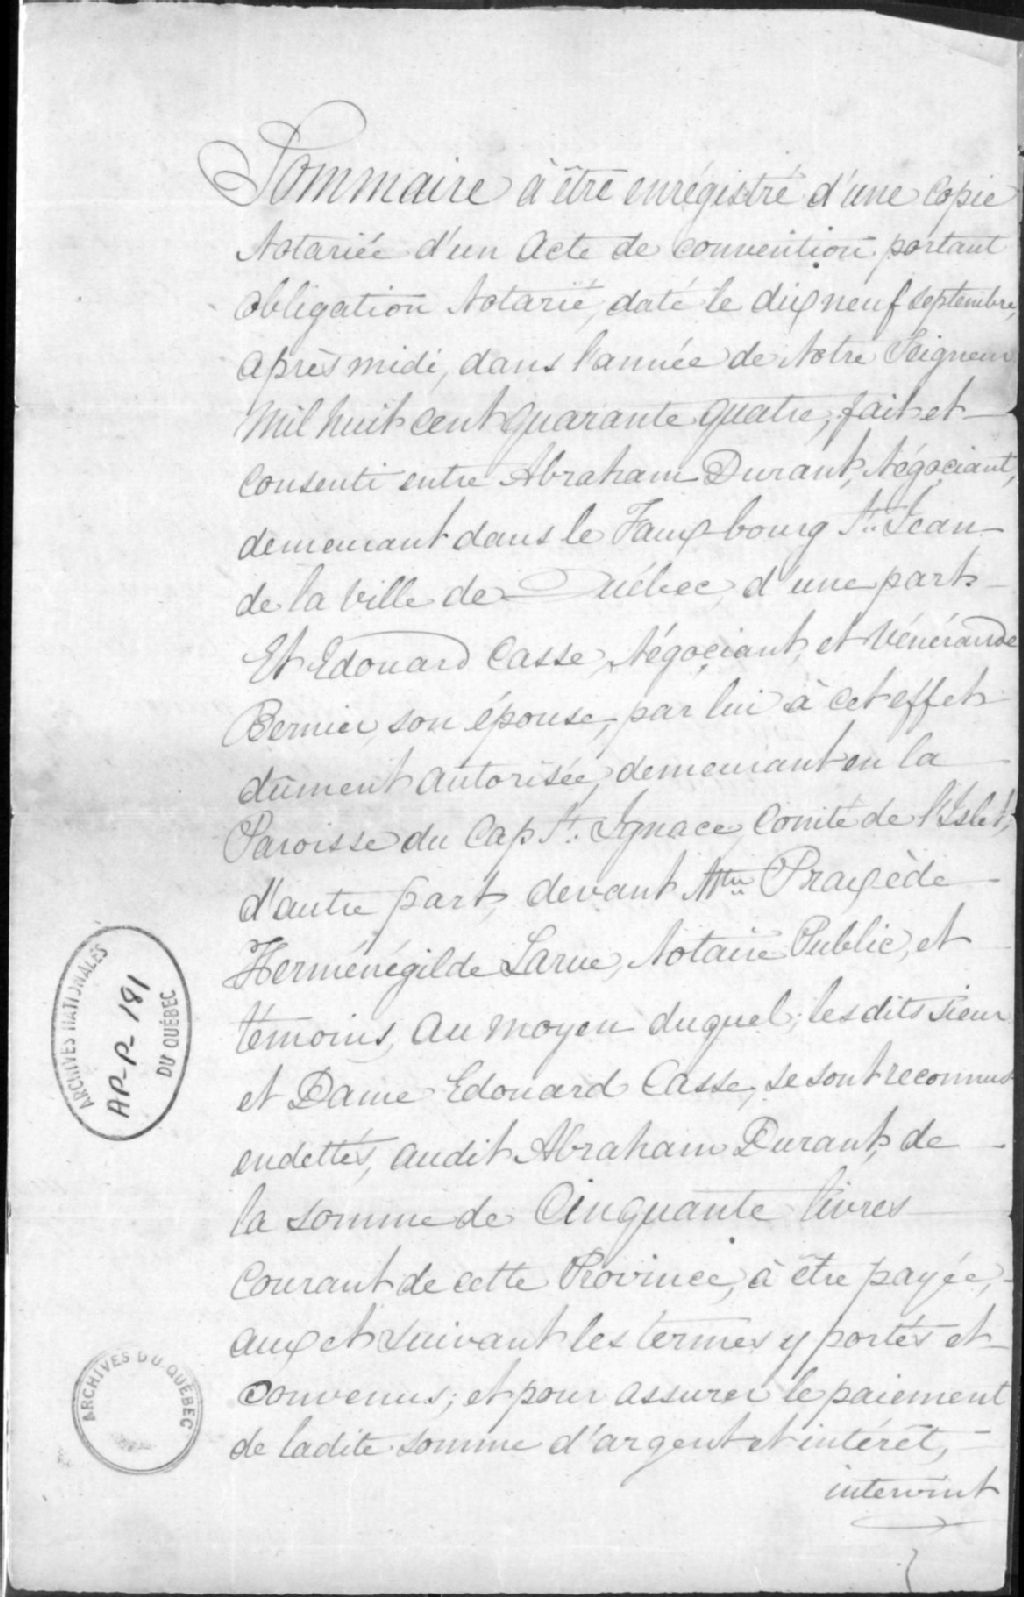 Sommaire à être enrégistré d'une Copie
Notariée d'un Acte de convention portant
obligation Notarié, daté le dix neuf septembre,
après midi, dans l'année de Notre Seigneur
Mil huit cent quarante quatre, fait et
Consenti entre Abraham Durant, Négociant,
demeurant dans le Faux bourg St. Jean
de la Ville de Québec, d'une part
Et Edouard Casse, Négociant, et Vénérande
Bernier, son épouse, par lui à cet effet
dûment autorisée, demeurant en la
Paroisse du Cap St. Ignace, Comté de l'Islet,
d'autre part, devant Mtre Praxède
Herménégilde Larue, Notaire Public, et
témoins, au moyen duquel, lesdits sieur
et Dame Edouard Casse, se sont reconnus
endettés, audit Abraham Durant, de
la somme de Cinquante livres
Courant de cette Province, à être payée,
aux et suivant les termes y portés et
Convenus; et pour assurer le paiement
de ladite somme d'argent et intérêt,
intervint
ARCHIVES NATIONALES
AP-P-181
DU QUÉBEC
ARCHIVES DU QUÉBEC